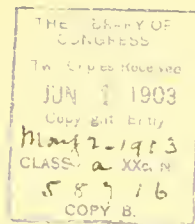 THE LIBRARY OF
CONGRESS
Two Copies Received
JUN 1903
Copyright Entry
CLASS a XXc. N
5 8 7 1 6
COPY B.